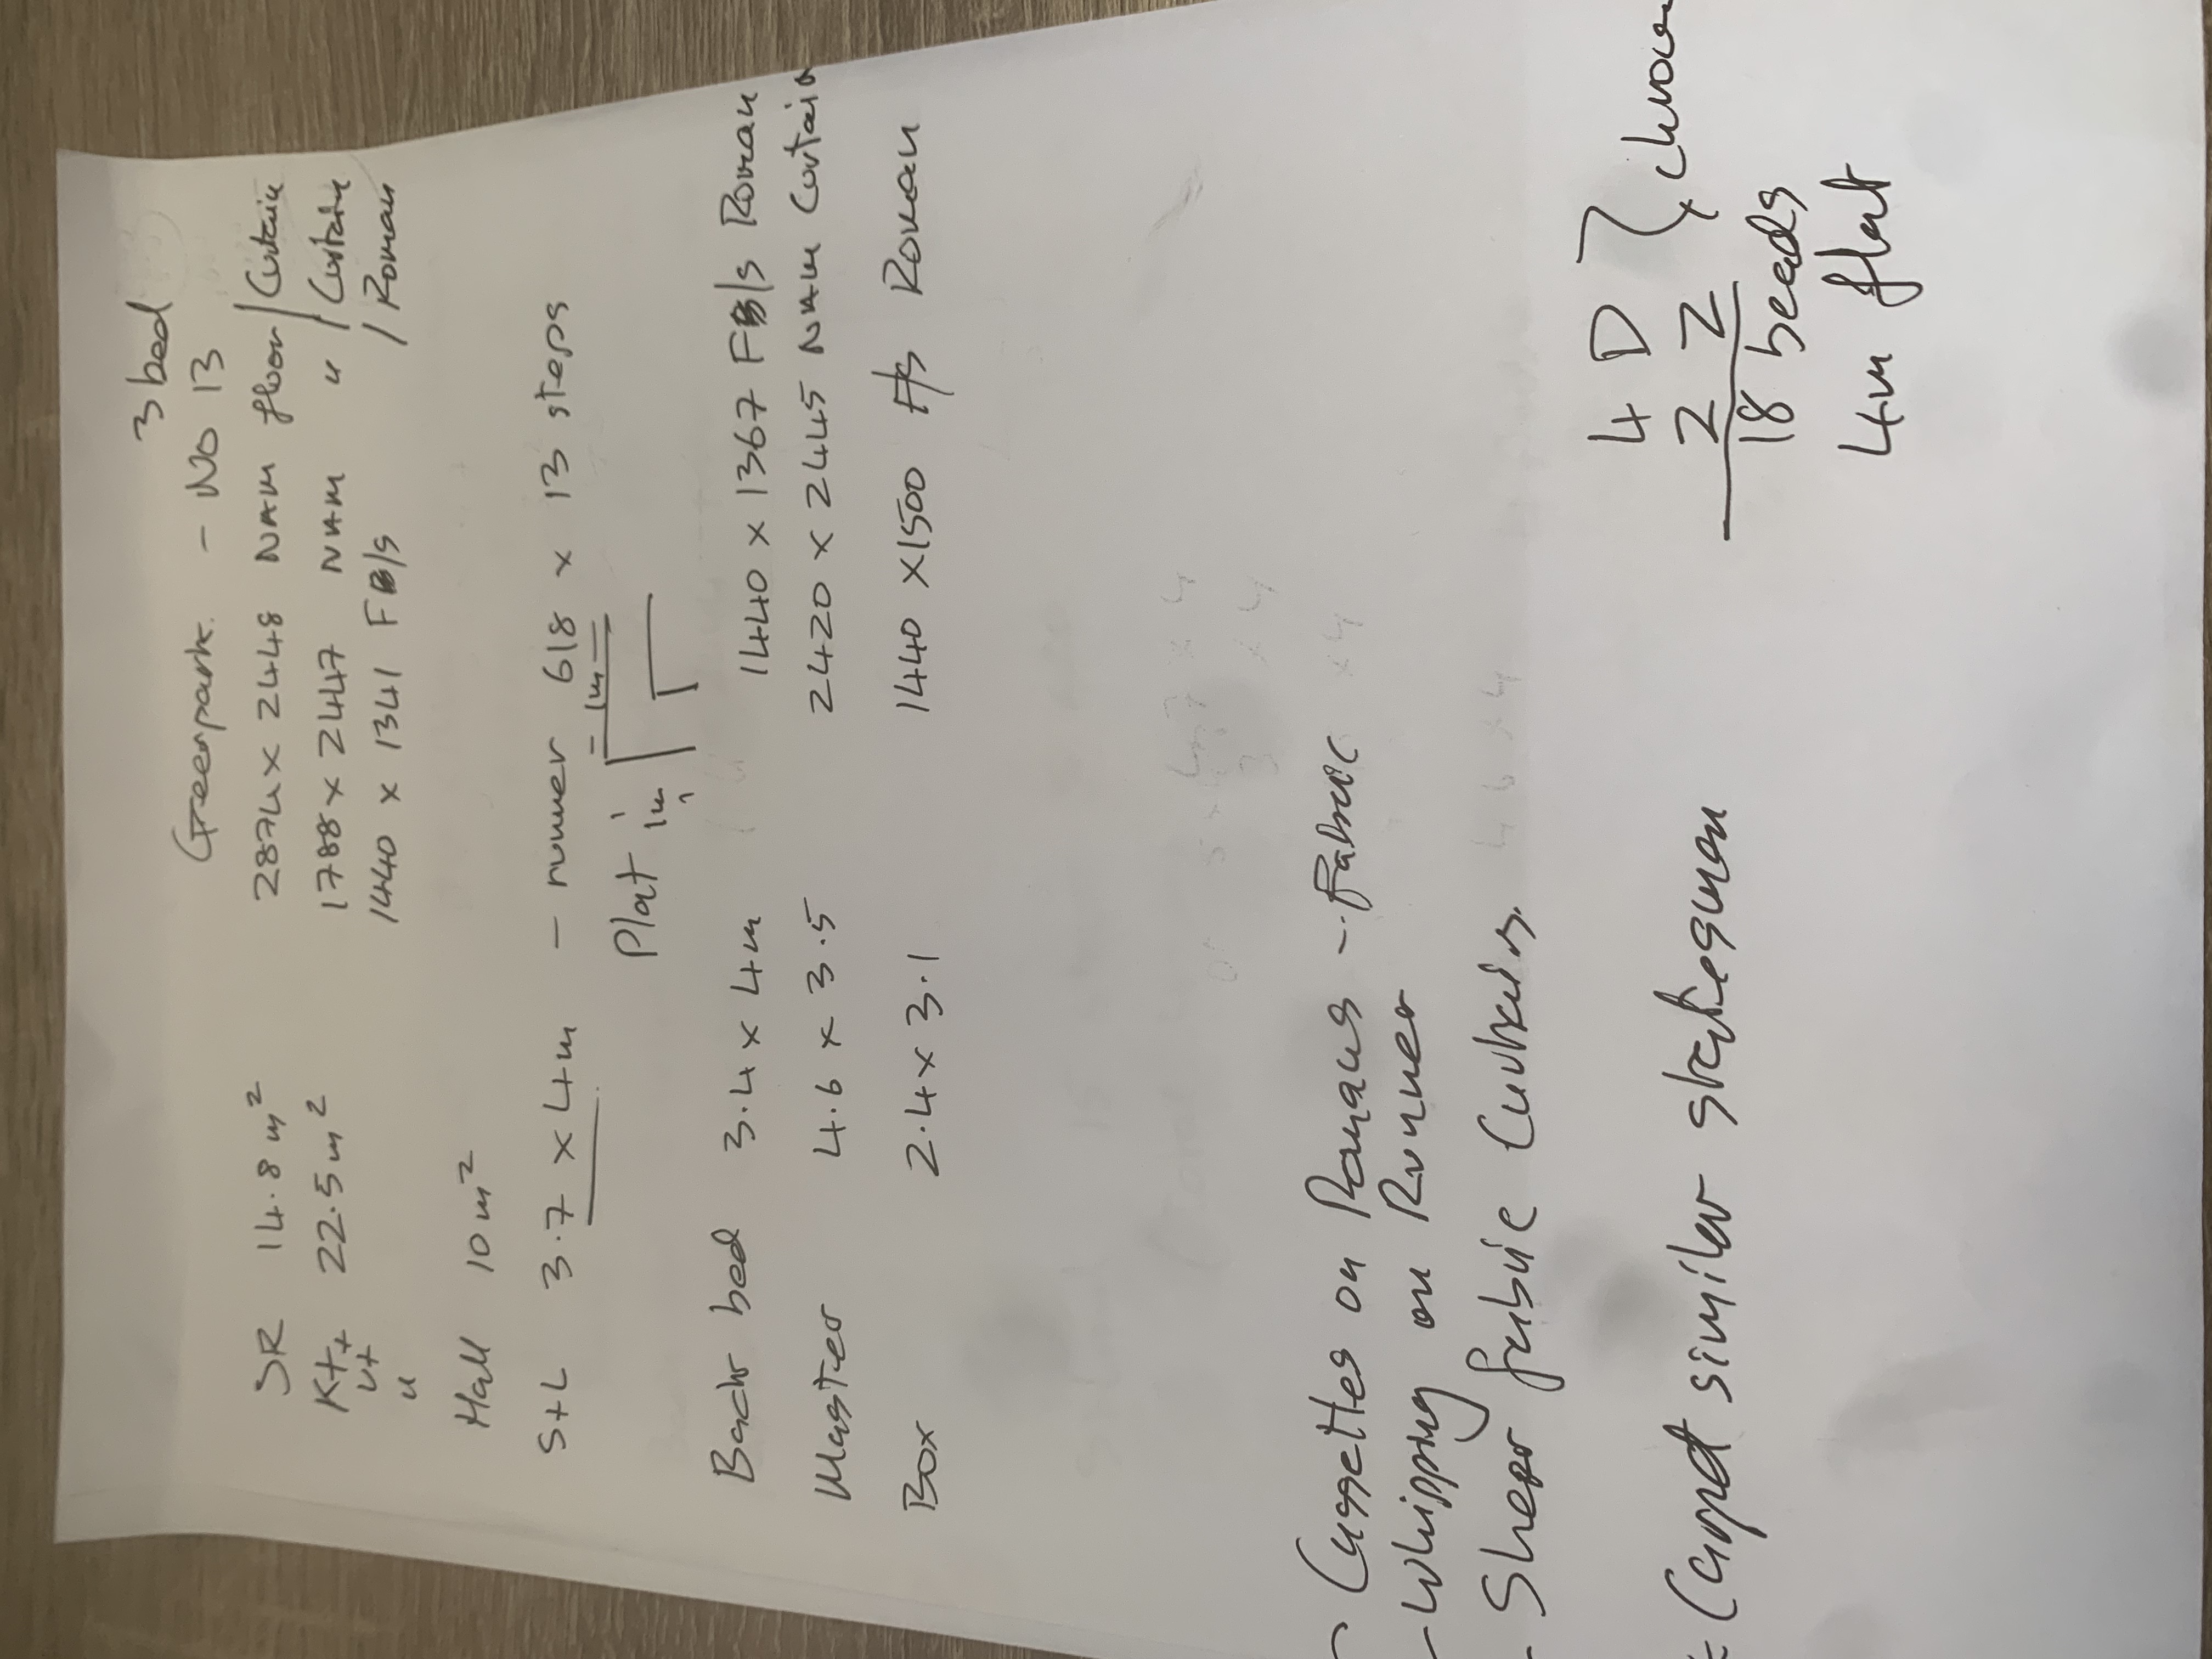 3 bed
Greenpark - No 13
SR 14.8m² 2874 x 2448 NAM floor/Curtain
Kt+ 22.5m² 1788 x 2447 NAM " / Curtain
u+
" 1440 x 1341 FB/s / Roman
Hall 10m²
S+L 3.7 x 4m - runner 618 x 13 steps
Plat 1m 1m
Back bed 3.4 x 4m 1440 x 1367 FB/s Roman
Master 4.6 x 3.5 2420 x 2445 NAM Curtain
Box 2.4 x 3.1 1440 x 1500 F/s Roman
- Cassettes on Romans - Fabric
- Whipping on Runner
- Sheer fabric Curtains.
4 D
2 Z
18 beads
4m flat
Carpet similar statesman